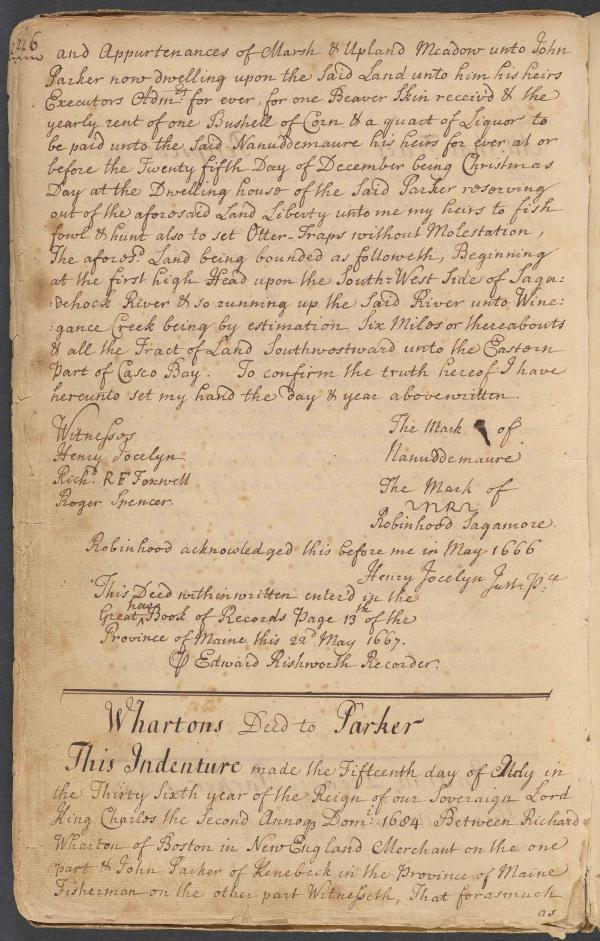 226
and Appurtenances of Marsh & Upland Meadow unto John
Parker now dwelling upon the said Land unto him his heirs
Executors Adm.rs for ever, for one Beaver Skin receiv'd & the
yearly rent of one Bushell of Corn & a quart of Liquor to
be paid unto the said Nanuddemaure his heirs for ever at or
before the Twenty fifth Day of December being Christmas
Day at the Dwelling house of the said Parker reserving
out of the aforesaid Land Liberty unto me my heirs to fish
fowl & hunt also to set Otter-Traps without Molestation,
The afores.d Land being bounded as followeth, Beginning
at the first high Head upon the South-West Side of Saga:
:dehock River & so running up the said River unto Wine:
:gance Creek being by estimation Six Miles or thereabouts
& all the Tract of Land Southwestward unto the Eastern
part of Casco Bay. To confirm the truth hereof I have
hereunto set my hand the day & year abovewritten.
Witnesses
Henry Jocelyn
Rich.d RF Foxwell
Roger Spencer.
The Mark of
Nanuddemaure
The Mark of
Robinhood Sagamore.
Robinhood acknowledged this before me in May 1666
Henry Jocelyn Just: P:ce
This Deed within written enter'd in the
Great new Book of Records Page 13th of the
Province of Maine this 22d May 1667.
Edward Rishworth Recorder.
Whartons Deed to Parker
This Indenture made the Fifteenth day of July in
the Thirty Sixth year of the Reign of our Soveraign Lord
King Charles the Second Annoq Domi: 1684 Between Richard
Wharton of Boston in New England Merchant on the one
part & John Parker of Kenebeck in the Province of Maine
Fisherman on the other part Witnesseth, That forasmuch
as